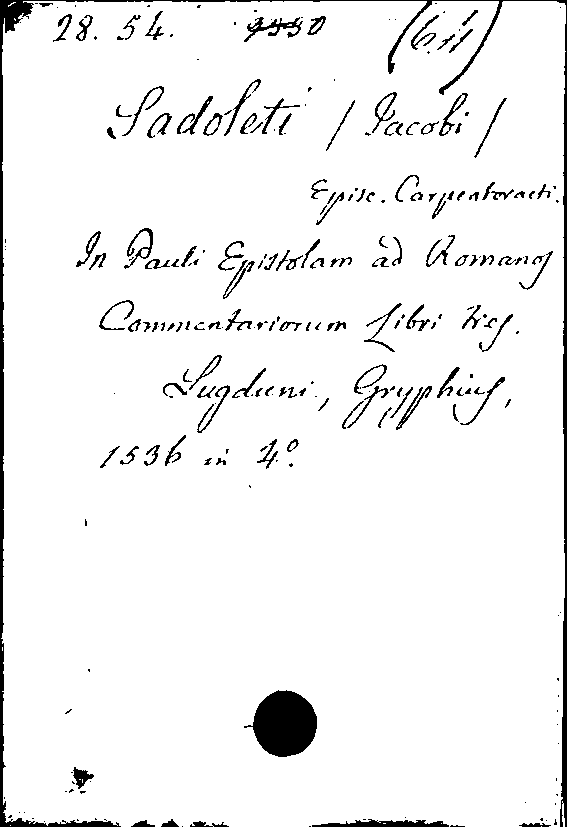 28. 54.
Sadoleti / Iacobi /
Episc. Carpentoracti.
In Pauli Epistolam ad Romanos
Commentariorum Libri tres.
Lugduni, Gryphius,
1536 in 4º.